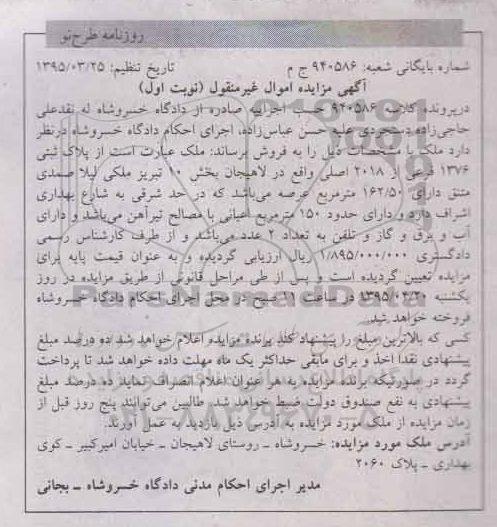 روزنامه طرح‌نو
شماره بایگانی شعبه: ۹۴۰۵۸۶ ج م تاریخ تنظیم: ۱۳۹۵/۰۳/۲۵
آگهی مزایده اموال غیرمنقول (نوبت اول)
درپرونده کلاسه ۹۴۰۵۸۶ حسب اجرائیه صادره از دادگاه خسروشاه له نقدعلی
حاجی‌زاده دستجردی علیه حسن عباس‌زاده، اجرای احکام دادگاه خسروشاه درنظر
دارد ملک با مشخصات ذیل را به فروش برساند: ملک عبارت است از پلاک ثبتی
۱۳۷۶ فرعی از ۲۰۱۸ اصلی واقع در لاهیجان بخش ۱۰ تبریز ملکی لیلا صمدی
متنق دارای ۱۶۲/۵۰ مترمربع عرصه می‌باشد که در حد شرقی به شارع بهداری
اشراف دارد و دارای حدود ۱۵۰ مترمربع اعیانی با مصالح تیرآهن می‌باشد و دارای
آب و برق و گاز و تلفن به تعداد ۲ عدد می‌باشد و از طرف کارشناس رسمی
دادگستری ۱/۸۹۵/۰۰۰/۰۰۰ ریال ارزیابی گردیده و به عنوان قیمت پایه برای
مزایده تعیین گردیده است و پس از طی مراحل قانونی از طریق مزایده در روز
یکشنبه ۱۳۹۵/۰۴/۲۰ در ساعت ۱۱ صبح در محل اجرای احکام دادگاه خسروشاه
فروخته خواهد شد.
کسی که بالاترین مبلغ را پیشنهاد کند برنده مزایده اعلام خواهد شد ده درصد مبلغ
پیشنهادی نقدا اخذ و برای مابقی حداکثر یک ماه مهلت داده خواهد شد تا پرداخت
گردد در صورتیکه برنده مزایده به هر عنوان اعلام انصراف نماید ده درصد مبلغ
پیشنهادی به نفع صندوق دولت ضبط خواهد شد. طالبین می‌توانند پنج روز قبل از
زمان مزایده از ملک مورد مزایده به آدرس ذیل بازدید به عمل آورند.
آدرس ملک مورد مزایده: خسروشاه ـ روستای لاهیجان ـ خیابان امیرکبیر ـ کوی
بهداری ـ پلاک ۲۰۶۰
مدیر اجرای احکام مدنی دادگاه خسروشاه ـ بجانی
ParsNamadData